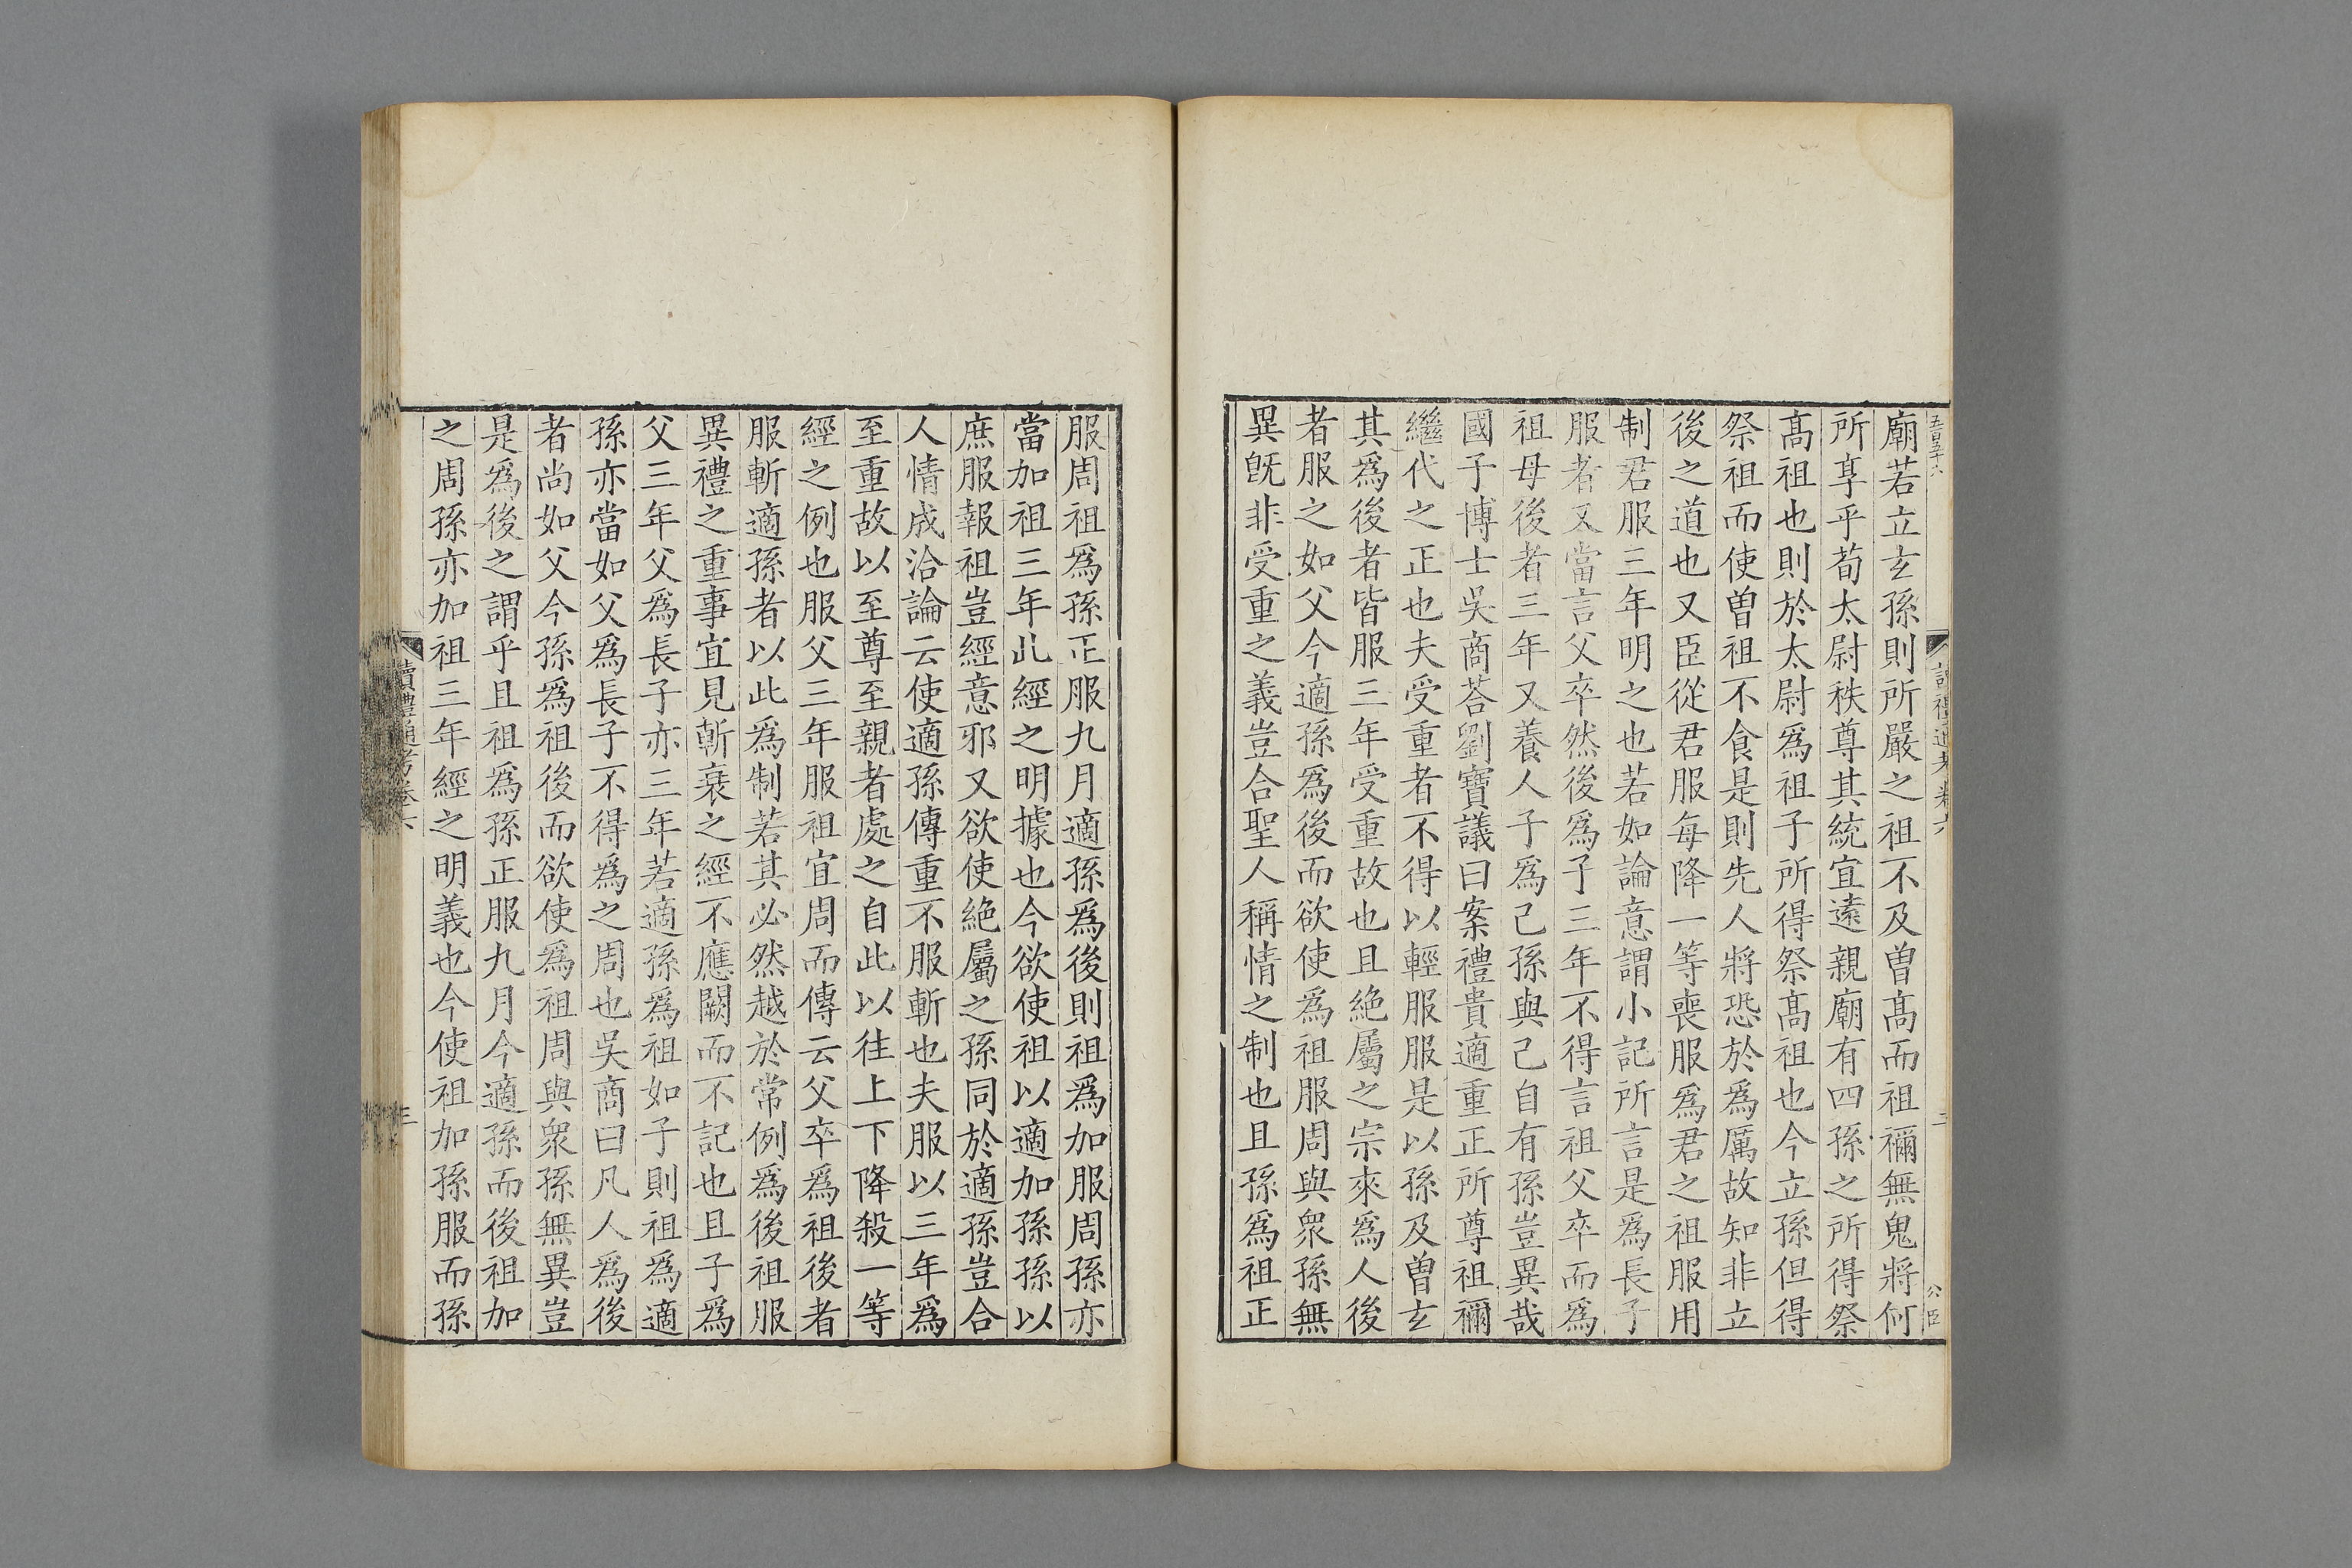 五百五十六
讀禮通考卷六
二
公臣
廟若立玄孫則所嚴之祖不及曾髙而祖禰無鬼將何
所享乎荀太尉秩尊其統宜遠親廟有四孫之所得祭
髙祖也則於太尉爲祖子所得祭髙祖也今立孫但得
祭祖而使曾祖不食是則先人將恐於爲厲故知非立
後之道也又臣從君服每降一等喪服爲君之祖服用
制君服三年明之也若如論意謂小記所言是爲長子
服者又當言父卒然後爲子三年不得言祖父卒而爲
祖母後者三年又養人子爲己孫與己自有孫豈異哉
國子博士吳商荅劉寶議曰案禮貴適重正所尊祖禰
繼代之正也夫受重者不得以輕服服是以孫及曾玄
其爲後者皆服三年受重故也且絶屬之宗來爲人後
者服之如父今適孫爲後而欲使爲祖服周與衆孫無
異旣非受重之義豈合聖人稱情之制也且孫爲祖正
服周祖爲孫正服九月適孫爲後則祖爲加服周孫亦
當加祖三年此經之明據也今欲使祖以適加孫孫以
庶服報祖豈經意邪又欲使絶屬之孫同於適孫豈合
人情成洽論云使適孫傳重不服斬也夫服以三年爲
至重故以至尊至親者處之自此以往上下降殺一等
經之例也服父三年服祖宜周而傳云父卒爲祖後者
服斬適孫者以此爲制若其必然越於常例爲後祖服
異禮之重事宜見斬衰之經不應闕而不記也且子爲
父三年父爲長子亦三年若適孫爲祖如子則祖爲適
孫亦當如父爲長子不得爲之周也吳商曰凡人爲後
者尚如父今孫爲祖後而欲使爲祖周與衆孫無異豈
是爲後之謂乎且祖爲孫正服九月今適孫而後祖加
之周孫亦加祖三年經之明義也今使祖加孫服而孫
讀禮通考卷六
三